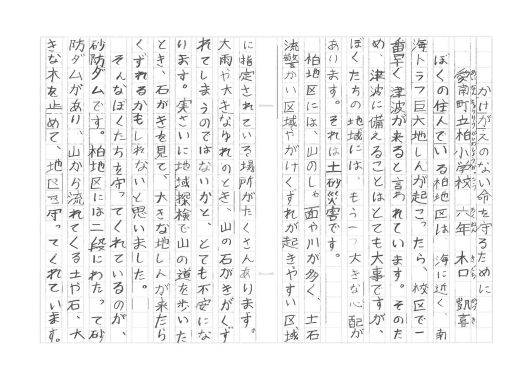 かけがえのない命を守るために
愛南町立柏小学校 六年 木口 凱喜
ぼくの住んでいる柏地区は、海に近く、南
海トラフ巨大地しんが起こったら、校区で一
番早く津波が来ると言われています。そのた
め、津波に備えることはとても大事ですが、
ぼくたちの地域には、もう一つ大きな心配が
あります。それは土砂災害です。
柏地区には、山のしゃ面や川が多く、土石
流警かい区域やがけくずれが起きやすい区域
に指定されている場所がたくさんあります。
大雨や大きなゆれのとき、山の石がきがくず
れてしまうのではないかと、とても不安にな
ります。実さいに地域探検で山の道を歩いた
とき、石がきを見て、大きな地しんが来たら
くずれるかもしれないと思いました。
そんなぼくたちを守ってくれているのが、
砂防ダムです。柏地区には二段にわたって砂
防ダムがあり、山から流れてくる土や石、大
きな木を止めて、地区を守ってくれています。